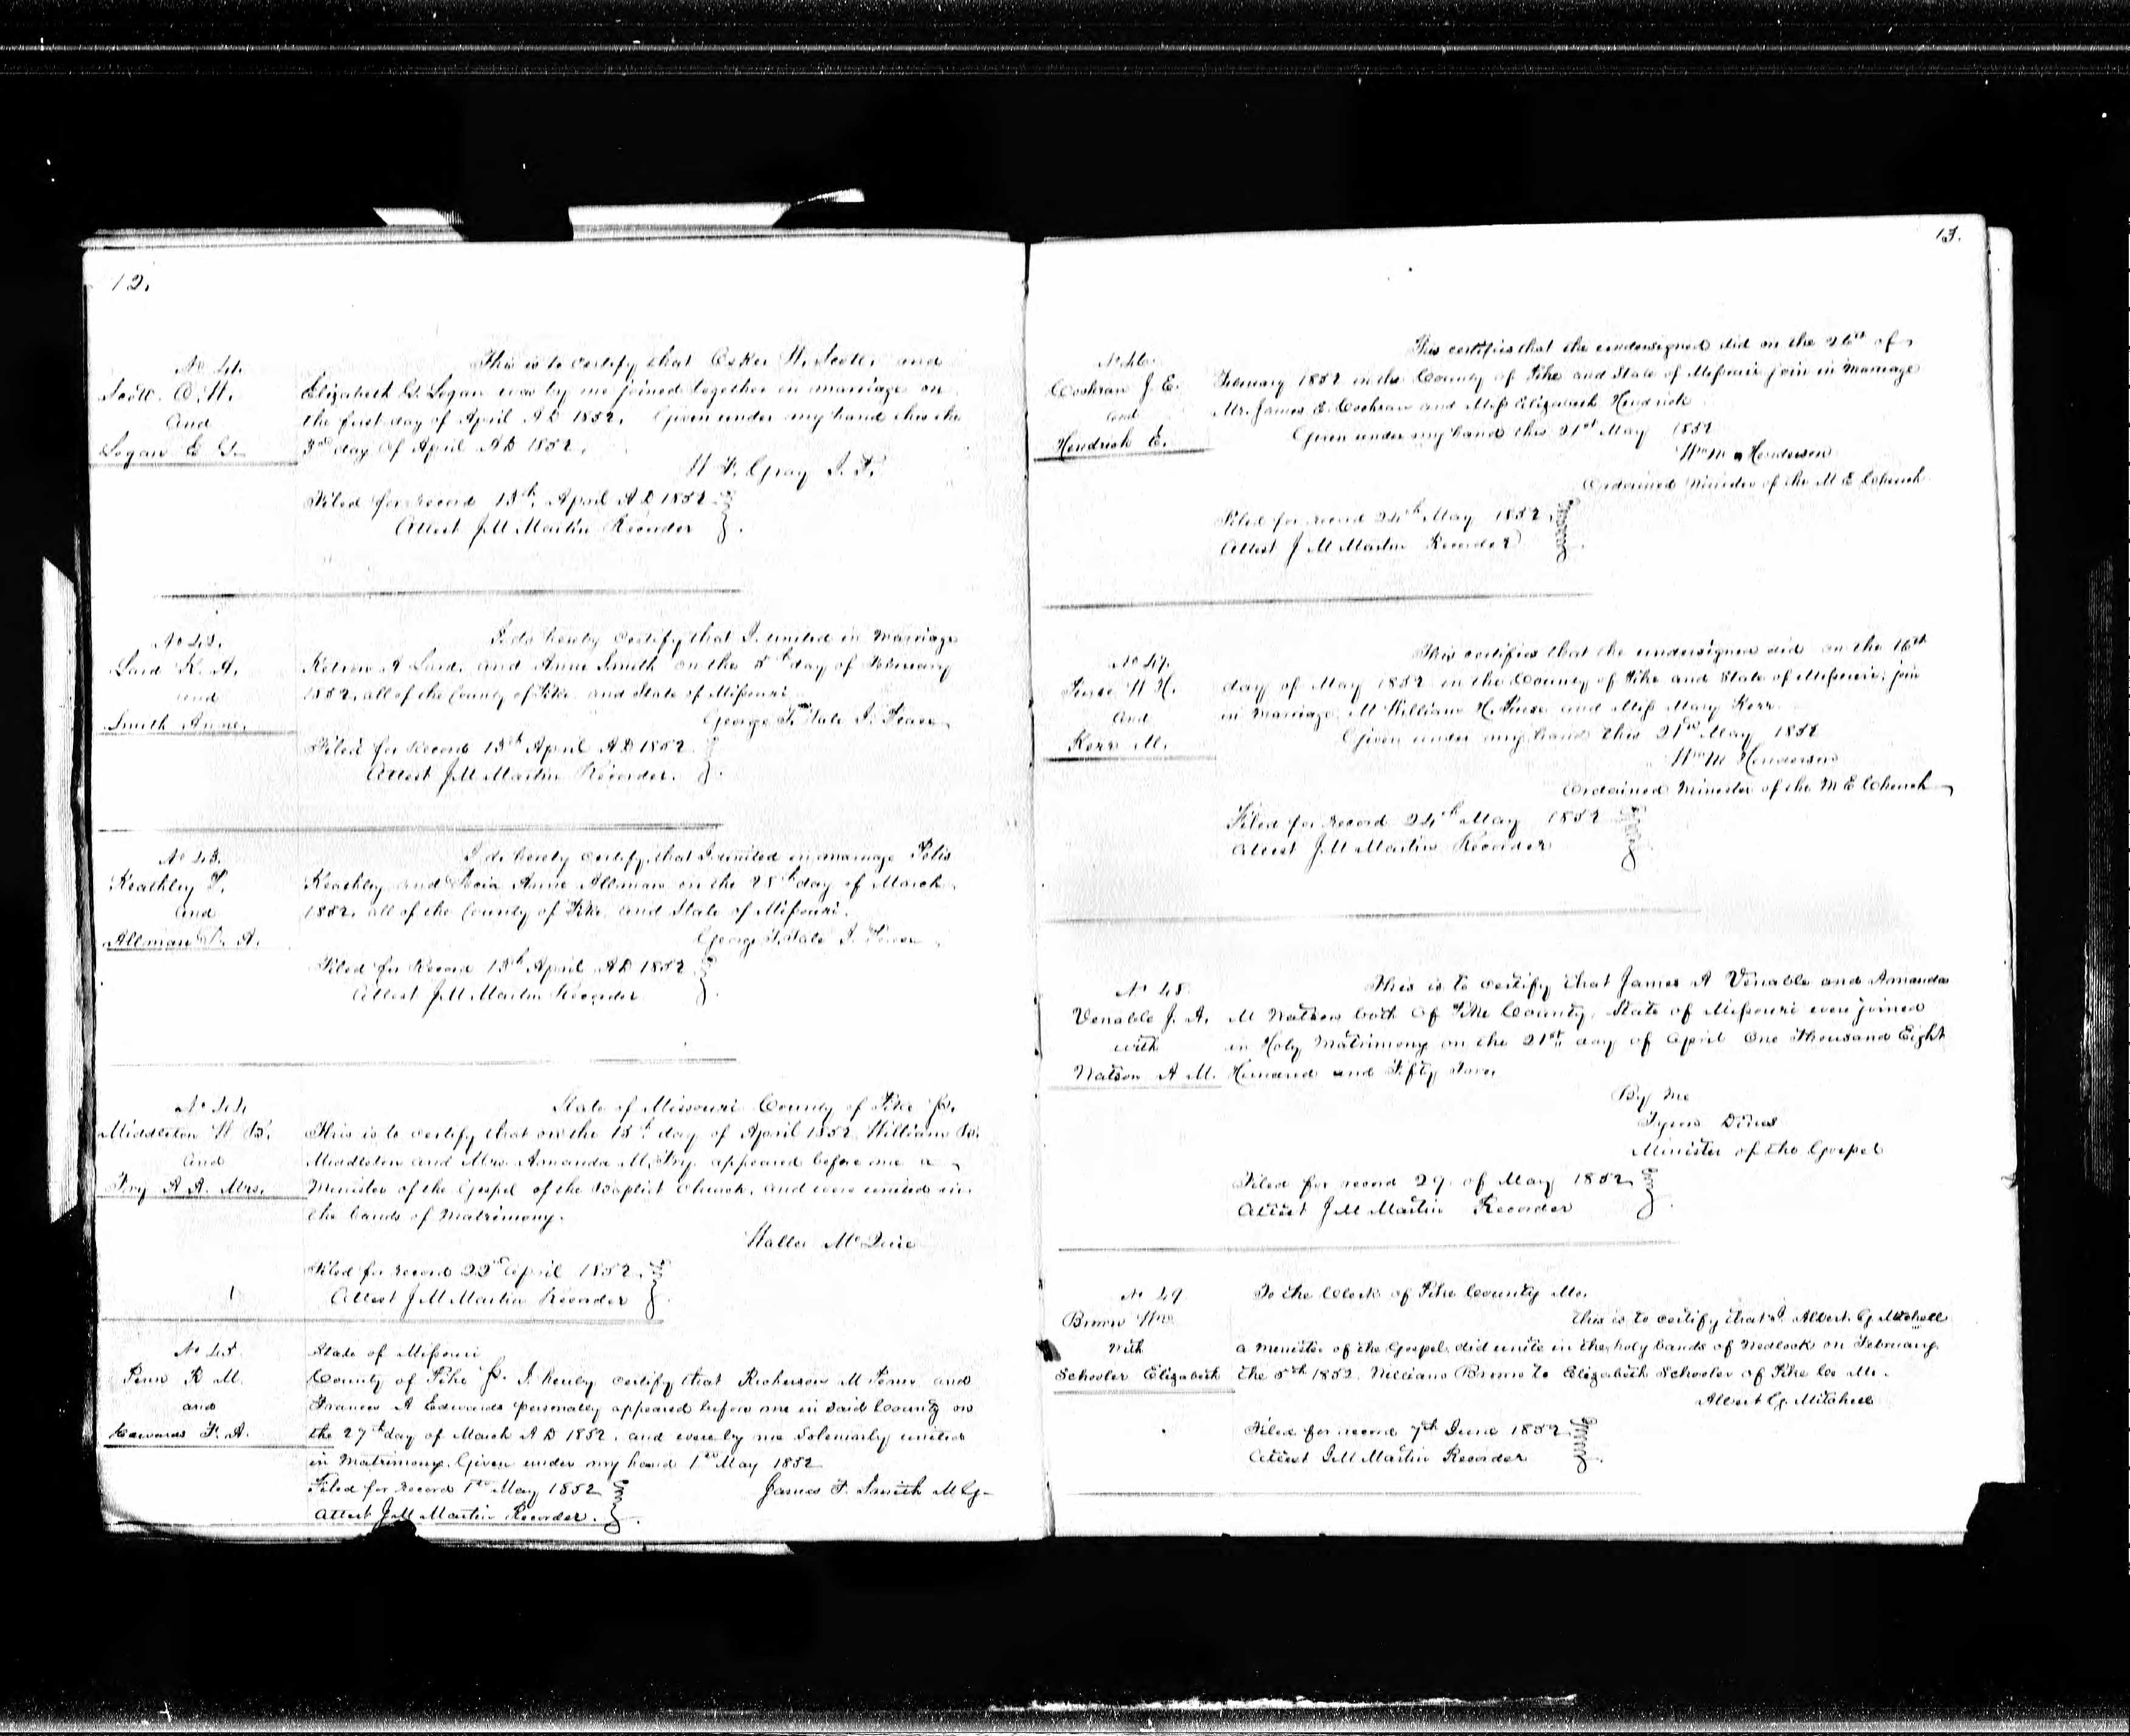 12.
No 41.
Scott. O. H.
and
Logan E G.
This is to certify that Osker H. Scott. and
Elizabeth G. Logan was by me joined together in marriage on
the first day of April A D 1852. Given under my hand this the
3rd day Of April A D 1852.
H F. Gray J. P.
Filed for record 13th April A D 1852
Attest J M Martin Recorder
No 42.
Lard K. A.
and
Smith Anne.
I do hereby certify that I united in Marriage
A Lard. and Anne Smith on the 5th day of February
1852. all of the County of Pike and State of Missouri
George F. Tate J. Peace
Filed for Record 13th April A D 1852
Attest J M Martin Recorder.
No 43.
Keathley P.
and
Allman A.
I do hereby certify that I united in marriage
Keathley and Anne Allman on the 28th day of March
1852. all of the County of Pike and State of Missouri.
George F. Tate J. Peace
Filed for Record 13th April A D 1852
Attest J M Martin Recorder
No 44
Middleton W B.
and
Fry A A. Mrs.
State of Missouri County of Pike ss.
This is to certify that on the 15th day of April 1852 William B.
Middleton and Mrs. Amanda M. Fry. appeared before me a
Minister of the Gospel of the Baptist Church. and were united in
the bands of Matrimony.
Walter McQuie
Filed for record 22nd April 1852.
Attest J M Martin Recorder
No 45.
Penn R M.
and
Edwards F. A.
State of Missouri
County of Pike ss. I hereby certify that Richerson M Penn and
Frances A Edwards personally appeared before me in said County on
the 27th day of March A D 1852. and were by me Solemnly united
in Matrimony. Given under my hand 1st May 1852
Filed for record 1st May 1852
James F. Smith M G
Attest J M Martin Recorder.
13.
No 46.
Cochran J. E.
and
Hendrick E.
This certifies that the undersigned did on the 26th of
February 1852 in the County of Pike and State of Missouri join in Marriage
Mr. James E. Cochran and Miss Elizabeth Hendrick
Given under my hand this 21st May 1852
Wm M Henderson
Ordained Minister of the M E Church
Filed for record 24th May 1852.
Attest J M Martin Recorder
No 47.
W H.
and
Kerr M.
This certifies that the undersigned did on the 16th
day of May 1852 in the County of Pike and State of Missouri, join
in Marriage, M William H. and Miss Mary Kerr.
Given under my hand this 21st May 1852
Wm M Henderson
Ordained Minister of the M E Church
Filed for record 24th May 1852
Attest J M Martin Recorder
No 48
Venable J. A.
with
Watson A M.
This is to certify that James A Venable and Amanda
M Watson both Of Pike County, State of Missouri were joined
in Holy Matrimony on the 21st day of April One Thousand Eight
Hundred and Fifty Two.
By Me
Tyson Dines
Minister of the Gospel
Filed for record 29 of May 1852
Attest J M Martin Recorder
No 49
Brown Wm
with
Schooler Elizabeth
To the Clerk of Pike County Mo.
This is to certify that I. Albert G. Mitchell
a minister of the Gospel. did unite in the holy bands of Wedlock on February
the 5th 1852. William Brown to Elizabeth Schooler of Pike Co Mo.
Albert G. Mitchell
Filed for record 7th June 1852
Attest J M Martin Recorder